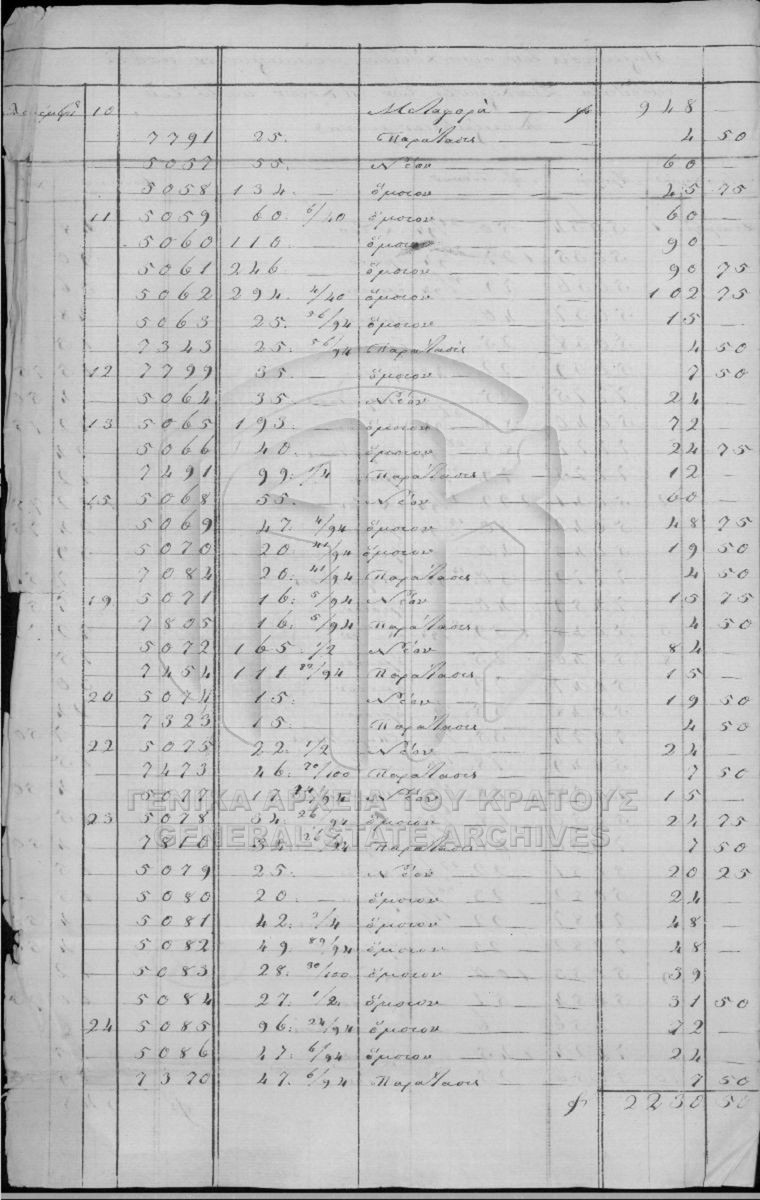 10 Μεταφορὰ φ 948 —
7791 25. Παράτασις 4 50
5057 55. — Νέον 60 —
5058 134. — ὅμοιον 45 75
11 5059 60 6/40 ὅμοιον 60 —
5060 110 — ὅμοιον 90 —
5061 246 — ὅμοιον 90 75
5062 294. 4/40 ὅμοιον 102 75
5063 25. 36/94 ὅμοιον 15 —
7343 25: 56/94 Παράτασις 4 50
12 7799 35. — ὅμοιον 7 50
5064 35. — Νέον 24 —
13 5065 193. — ὅμοιον 72 —
5066 40. ὅμοιον 24 75
7491 99: 1/4 Παράτασις 12 —
15 5068 55. — Νέον 60 —
5069 47: 4/94 ὅμοιον 48 75
5070 20 41/94 ὅμοιον 19 50
7084 20: 41/94 Παράτασις 4 50
19 5071 16: 5/94 Νέον 15 75
7805 16: 5/94 Παράτασις 4 50
5072 165. 1/2 Νέον 84
7454 111 22/94 Παράτασις 15 —
20 5074 15: Νέον 19 50
7323 15: Παράτασις 4 50
22 5075 22: 1/2 Νέον 24 —
7473 46: 70/100 Παράτασις 7 50
5077 17 Νέον 15 —
23 5078 34: 26/94 ὅμοιον 24 75
7810 34: 26/94 Παράτασις 7 50
5079 25: Νέον 20 25
5080 20 — ὅμοιον 24 —
5081 42: 3/4 ὅμοιον 48 —
5082 49. 89/94 ὅμοιον 48 —
5083 28. 30/100 ὅμοιον 39
5084 27: 1/2 ὅμοιον 31 50
24 5085 96: 24/94 ὅμοιον 72 —
5086 47: 6/94 ὅμοιον 24 —
7370 47. 6/94 Παράτασις 7 50
φ 2230 50
ΓΕΝΙΚΑ ΑΡΧΕΙΑ ΤΟΥ ΚΡΑΤΟΥΣ
GENERAL STATE ARCHIVES